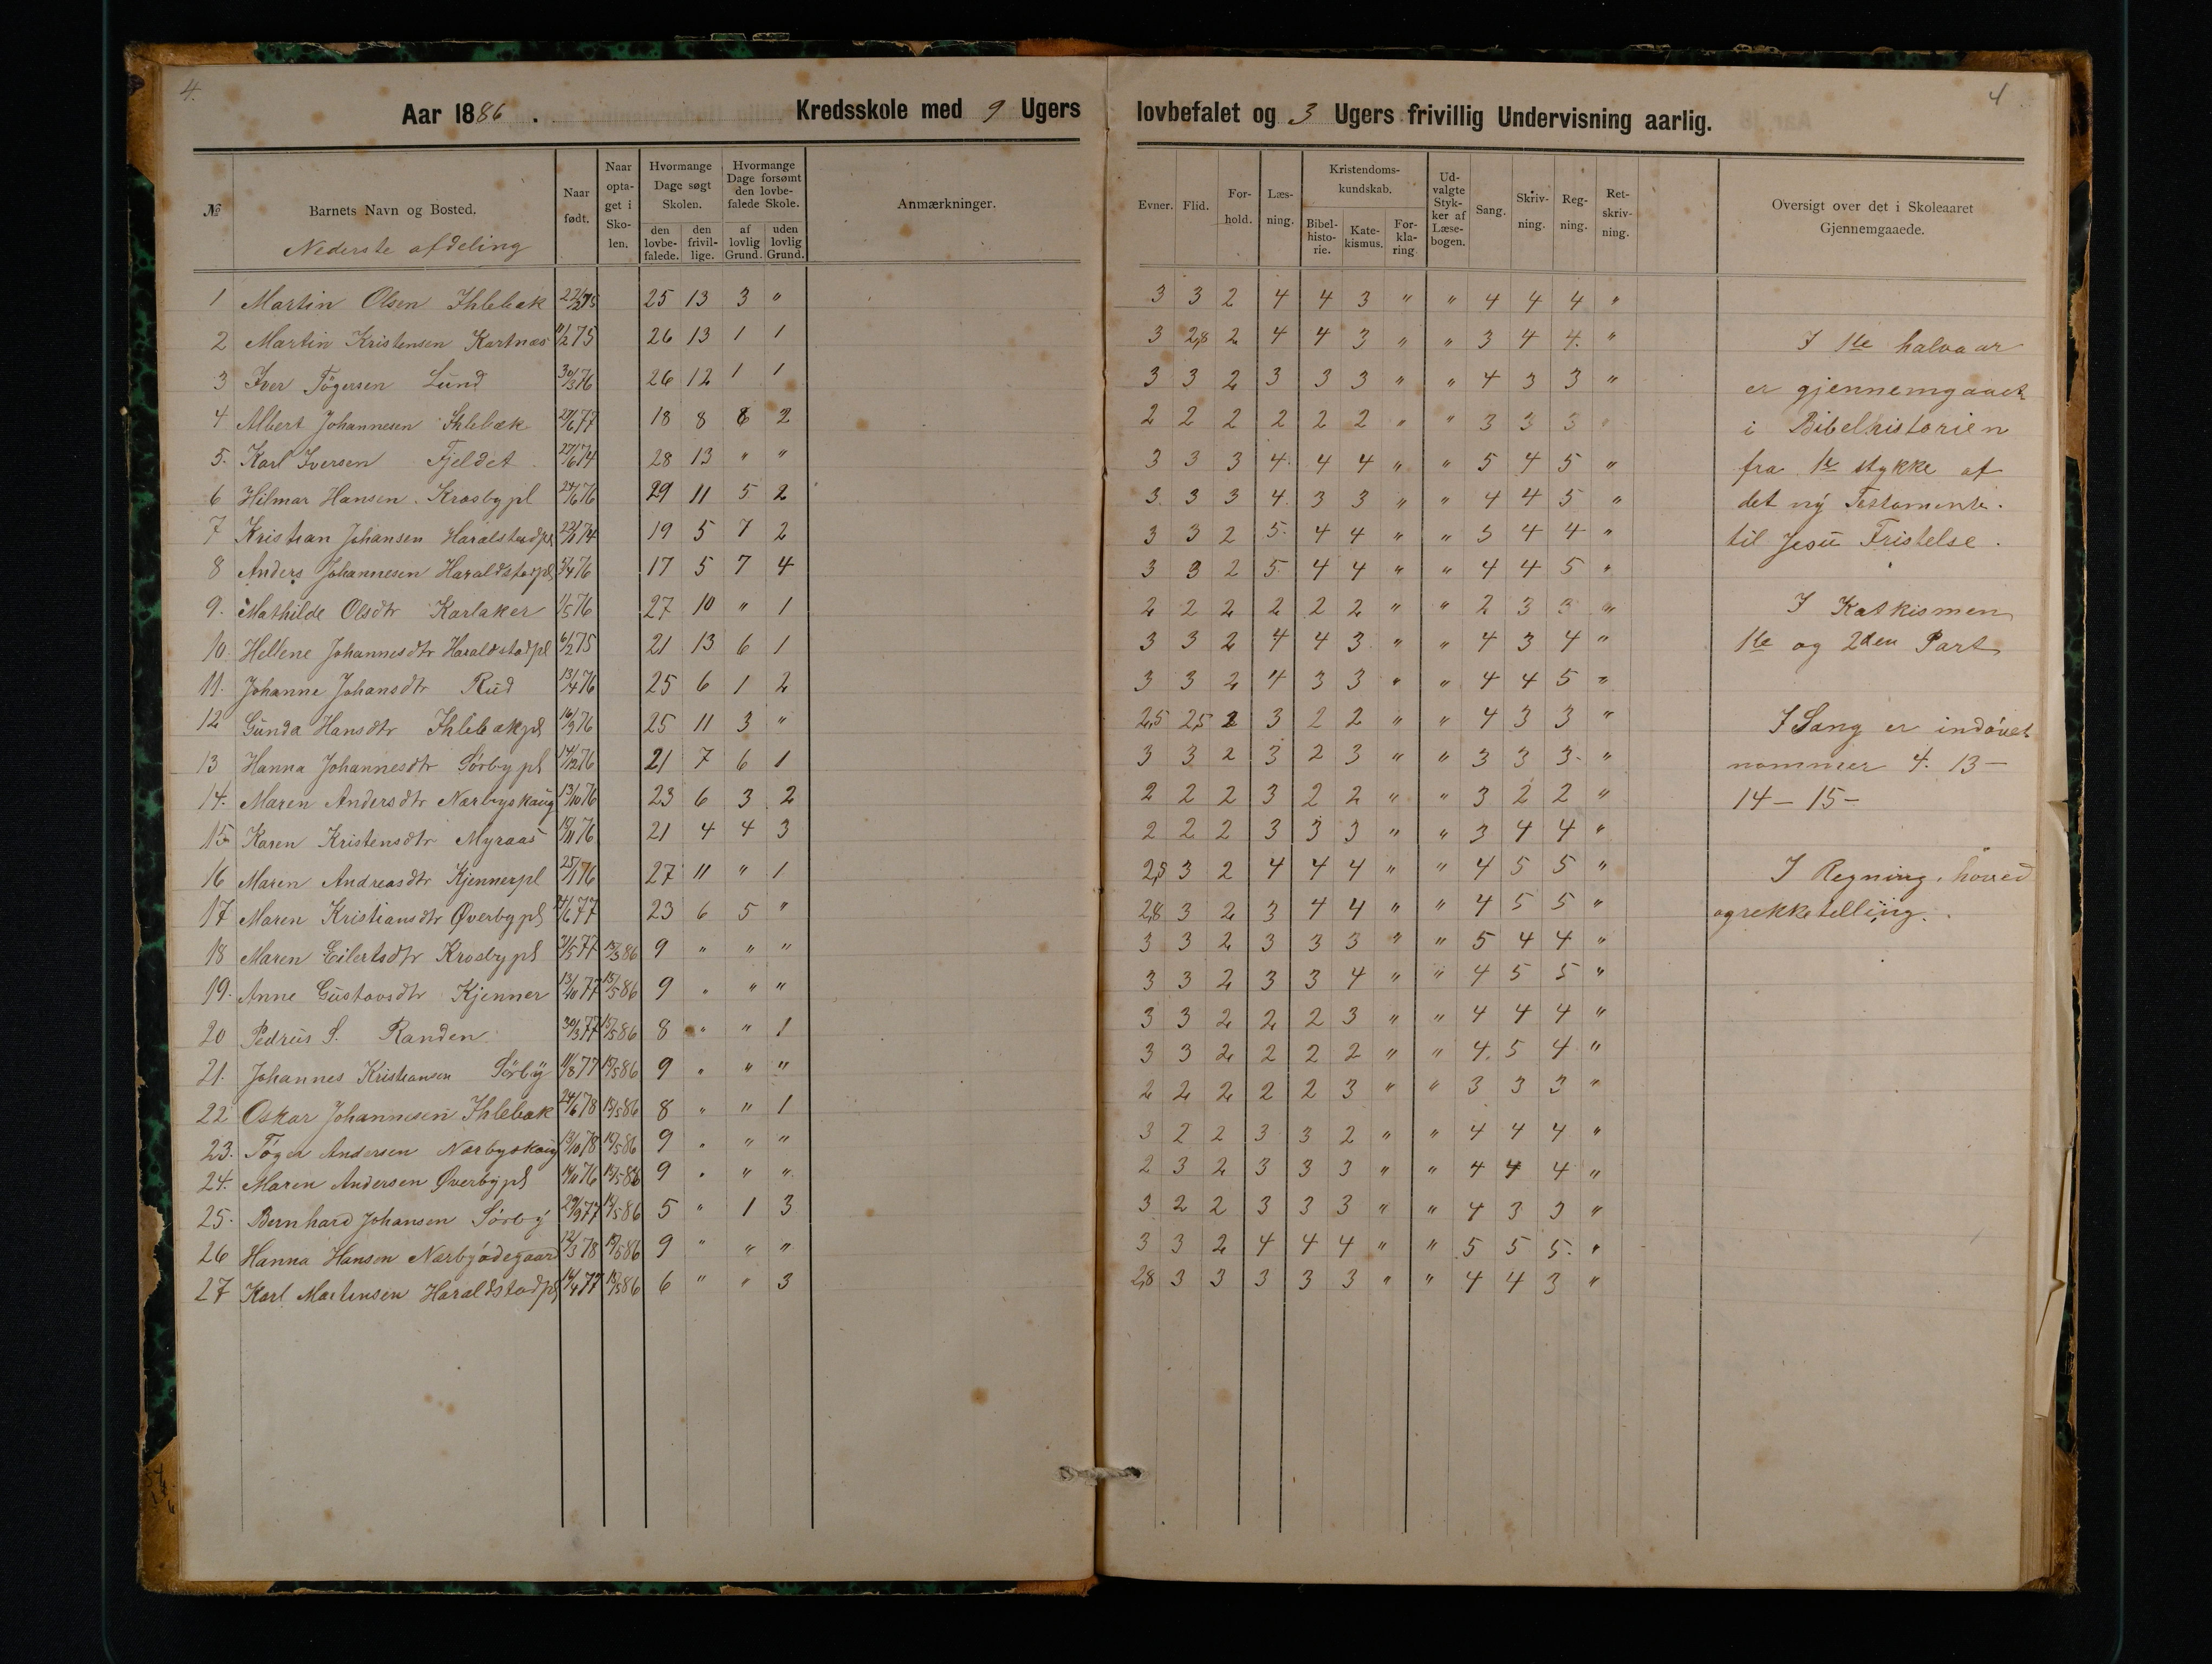 4.
Aar 1886. Kredsskole med 9 Ugers lovbefalet og 3 Ugers frivillig Undervisning aarlig.
4
№ Barnets Navn og Bosted. Naar født. Naar optaget i Skolen. Hvormange Dage søgt Skolen. den lovbefalede. den frivillige. Hvormange Dage forsømt den lovbefalede Skole. af lovlig Grund. uden lovlig Grund. Anmærkninger. Evner. Flid. Forhold. Læsning. Kristendomskundskab. Bibelhistorie. Katekismus. Forklaring Udvalgte Stykker af Læsebogen. Sang. Skrivning. Regning. Retskrivning. Oversigt over det i Skoleaaret Gjennemgaaede.
Nederste afdeling
1 Martin Olsen Ihlebæk 25 13 3 " 3 3 2 4 4 3 " " 4 4 4 "
2 Martin Kristensen Kortnæs 11/2 75 26 13 1 1 3 2,8 2 4 4 3 " " 3 4 4. "
3 Iver Tögersen Lund 30/3 76 26 12 1 1 3 3 2 3 3 3 " " 4 3 3 "
4 Albert Johannesen Ihlebæk 27/6 77 18 8 8 2 2 2 2 2 2 2 " " 3 3 3 "
5. Karl Iversen Fjeldet 27/6 74 28 13 " " 3 3 3 4. 4 4 " " 5 4 5 "
6 Hilmar Hansen Krosbypl 24/6 76 29 11 5 2 3 3 3 4. 3 3 " " 4 4 5 "
7 Kristian Johansen Haralstadpl 19 5 7 2 3 3 2 5. 4 4 " " 3 4 4 "
8 Anders Johannesen Haraldstadpl 17 5 7 4 3 3 2 5 4 4 " " 4 4 5 "
9. Mathilde Olsdtr Karlaker 1/5 76 27 10 " 1 2 2 2 2 2 2 " " 2 3 3 "
10. Hellene Johannesdtr Haraldstadpl 6/2 75 21 13 6 1 3 3 2 4 4 3 " " 4 3 4 "
11. Johanne Johansdtr Rud 13/4 76 25 6 1 2 3 3 2 4 3 3 " " 4 4 5 "
12 Gunda Hansdtr Ihlebækpl 16/9 76 25 11 3 " 2,5 2,5 2 3 2 2 " " 4 3 3 "
13 Hanna Johannesdtr Sørbypl 14/12 76 21 7 6 1 3 3 2 3 2 3 " " 3 3 3. "
14. Maren Andersdtr Nærbyskaug 13/10 76 23 6 3 2 2 2 2 3 2 2 " " 3 2 2 "
15 Karen Kristensdtr Myraas 21 4 4 3 2 2 2 3 3 3 " " 3 4 4 "
16 Maren Andreasdtr Kjennerpl 25/1 76 27 11 " 1 2,5 3 2 4 4 4 " " 4 5 5 "
17 Maren Kristiansdtr Øverbypl 23 6 5 " 2,8 3 2 3 4 4 " " 4 5 5 "
18 Maren Eilertsdtr Krosbypl 31/5 77 9 " " " 3 3 2 3 3 3 " " 5 4 4 "
19. Anne Gustavsdtr Kjenner 9 " " " 3 3 2 3 3 4 " " 4 5 5 "
20 Pedrus S. Randen 30/3 77 8 " " 1 3 3 2 2 2 3 " " 4 4 4 "
21. Johannes Kristiansen Sörby 11/8 77 9 " " " 3 3 2 2 2 2 " " 4. 5 4 "
22 Oskar Johannesen Ihlebæk 24/6 78 8 " " 1 2 2 2 2 2 3 " " 3 3 3 "
23. Töger Andersen Nærbyskaug 13/10 78 9 " " " 3 2 2 3 3 2 " " 4 4 4 "
24. Maren Andersen Øverbypl 9 " " " 2 3 2 3 3 3 " " 4 4 4 "
25. Bernhard Johansen Sörby 29/9 77 5 " 1 3 3 2 2 3 3 3 " " 4 3 3 "
26 Hanna Hansen Nærbyödegaard 12/3 78 9 " " " 3 3 2 4 4 4 " " 5 5 5. "
27 Karl Martensen Haraldstadpl 6 " " 3 2,8 3 3 3 3 3 " " 4 4 3 "
I 1ste halvaar
er gjennemgaaet
i Bibelhistorien
fra 1ste stykke af
det ny Testamente.
til Jesu Fristelse.
I Katkismen
1ste og 2den Part
I Sang er indøvet
nommer 4. 13 –
14 – 15 –
I Regning. hoved
og rekketelling.